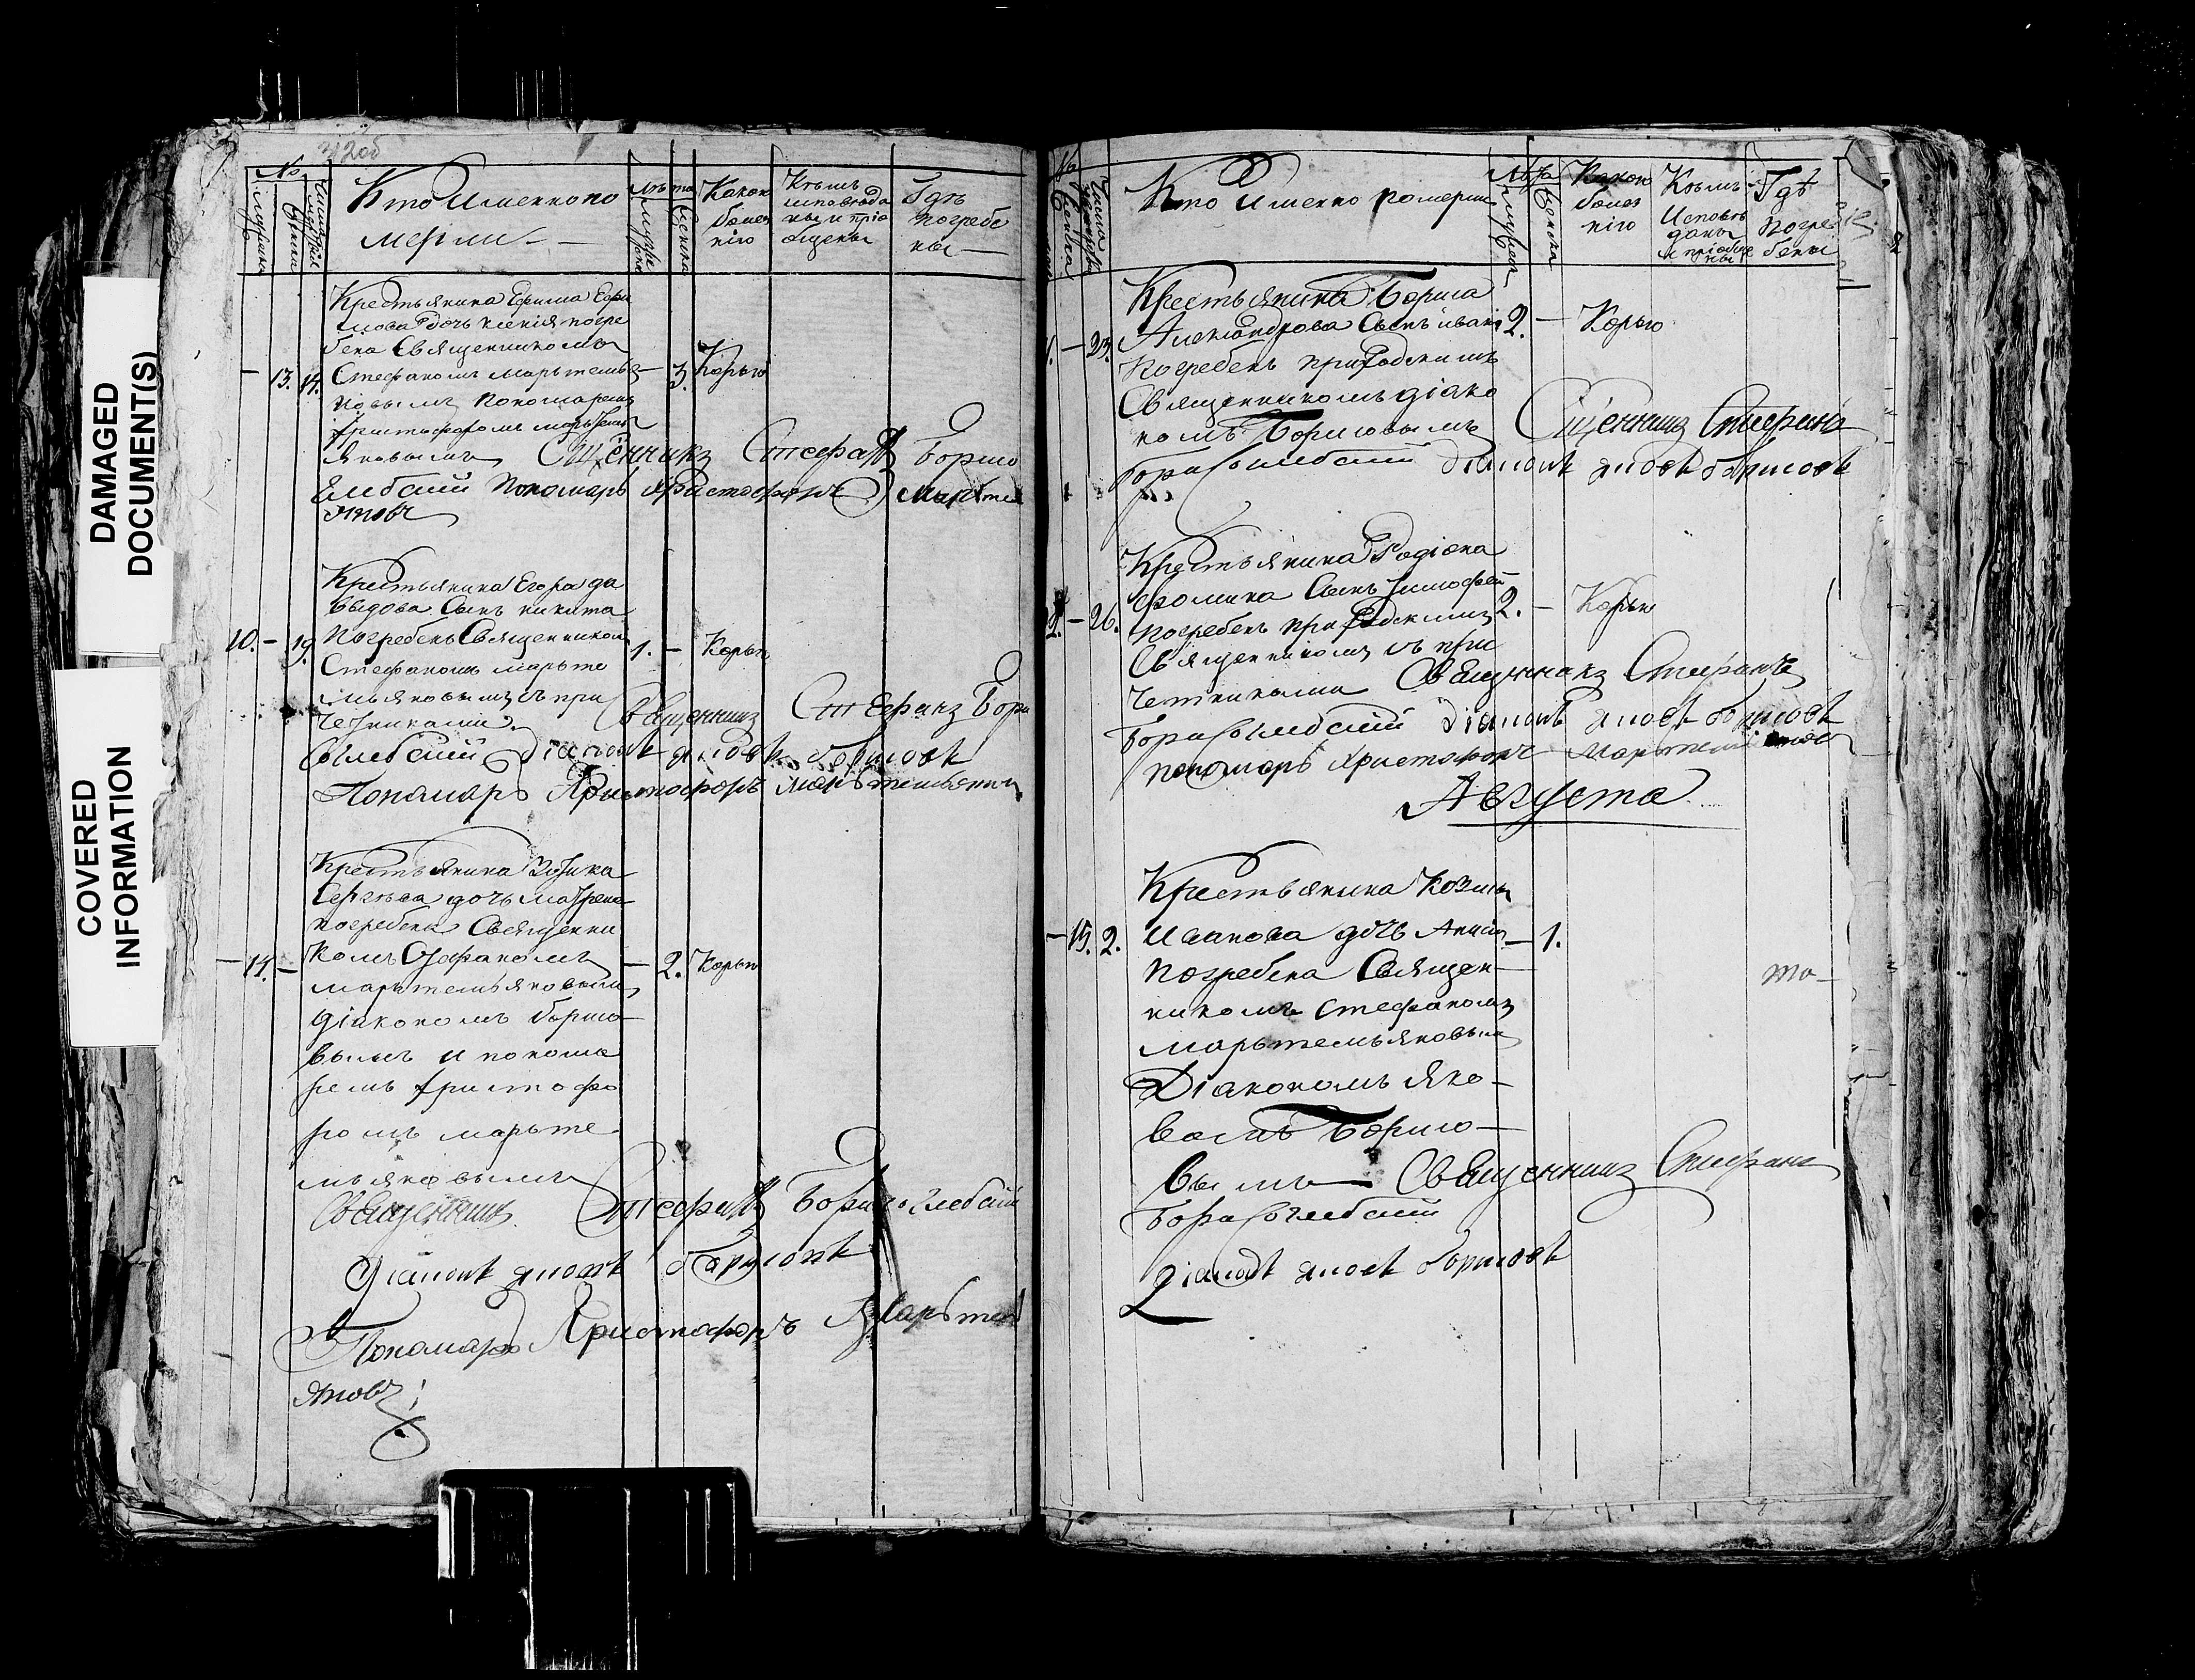 DAMAGED
DOCUMENT(S)
COVERED
INFORMATION
Кто Именно по
мерли
Какою
болез
нію
Кѣмъ
исповѣда
ны и пріо
бщены
Гдѣ
погребе
ны
Крестьянина Ефима Ефи
мова дочь ксенія погре
бена Священникомъ
13. 14. Стефаномъ Марьтемья 3. Корью
новымъ пономаремъ
христофоромъ марьтемь
яновымъ Сщенникъ Стефанъ Борисо
Глебский Пономарь Христофоръ Мартемь
яновъ
Крестьянина Егора да
выдова Сынъ никита
10. 19. погребенъ Священником 1. Корью
Стефаномъ марьте
мьяновымъ съ при
четниками Священникъ Стефанъ Бори
соглебский діаконъ яковъ борисовъ
Пономарь Христофоръ мартемьянов
Крестьянина
Сергѣева дочь матрена
погребена Священни
14. комъ Стефаномъ 2. Корью
марьтемьяновымъ
діакономъ борисо
вымъ и понома
ремъ христофо
ромъ марьте
мьяновымъ
Священникъ Стефанъ Борисоглебский
діаконъ яковъ борисовъ
Пономарь Христофоръ Мартем
яновъ
Кто Именно померли
Какою
болез
нію
Кѣмъ
Исповѣ
даны
и приобще
ны
Гдѣ
Погре
бены
Крестьянина Бориса
23. Александрова Сынъ иванъ 2. Корью
Погребенъ приходскимъ
Священникомъ діако
номъ Борисовымъ Сщенникъ Стефанъ
Борисоглебский діаконъ яковъ борисовъ
Крестьянина Родіона
Фомина Сынъ тимофей
26. погребенъ приходскимъ 2. Корью
Священникомъ съ при
четниками Священникъ Стефанъ
Борисоглебский діаконъ яковъ борисовъ
пономарь Христофоръ Мартемьянов
Августа
Крестьянина козмы
15. 2. Иванова дочь 1.
погребена Священ
никомъ Стефаномъ то
марьтемьяновым
Діакономъ Яко
вомъ Борисо
вымъ Священникъ Стефанъ
Борисоглебский
діаконъ яковъ борисовъ